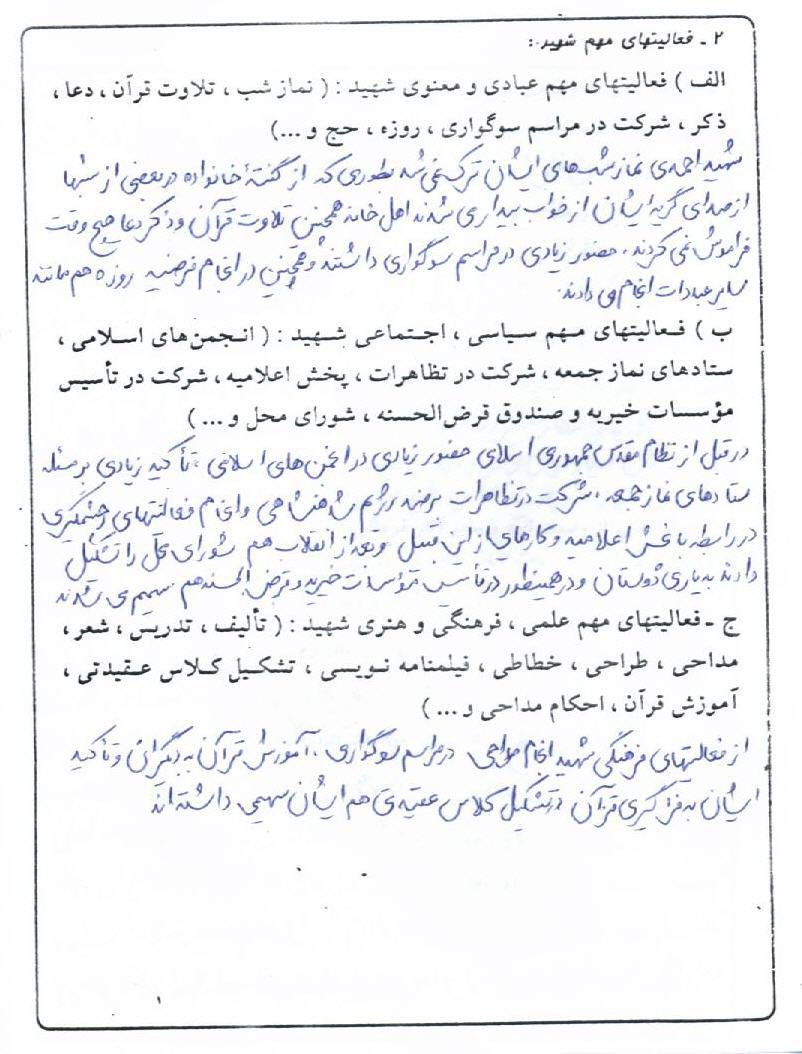 ۲ ـ فعالیتهای مهم شهید :
الف ) فعالیتهای مهم عبادی و معنوی شهید : ( نماز شب ، تلاوت قرآن ، دعا ،
ذکر ، شرکت در مراسم سوگواری ، روزه ، حج و ...)
شهید احمدی نماز شب‌های ایشان ترک نمی شد بطوری که از گفتهٔ خانواده در بعضی از شبها
از صدای گریه ایشان از خواب بیدار می شدند اهل خانه همچنین تلاوت قرآن و ذکر دعا هیچ وقت
فراموش نمی کردند . حضور زیادی در مراسم سوگواری داشتند و همچنین در انجام فرضیه روزه هم مانند
سایر عبادات انجام می دادند .
ب ) فـعالیتهای مـهم سـیاسی ، اجـتماعی شـهید : ( انـجمن‌های اسـلامی ،
ستادهای نماز جمعه ، شرکت در تظاهرات ، پخش اعلامیه ، شرکت در تأسیس
مؤسسات خیریه و صندوق قرض‌الحسنه ، شورای محل و ... )
در قبل از نظام مقدس جمهوری اسلامی حضور زیادی در انجمن های اسلامی ، تأکید زیادی بر مسئله
ستادهای نماز جمعه ، شرکت در تظاهرات بر ضد رژیم شاهنشاهی و انجام فعالیتهای چشمگیری
در رابطه با پخش اعلامیه و کارهای از این قبیل و بعد از انقلاب هم شورای محل را تشکیل
دادند به یاری دوستان و در همینطور در تأسیس مؤسسات خیریه و قرض الحسنه هم سهیم می شدند
ج ـ فعالیتهای مهم علمی ، فرهنگی و هنری شهید : ( تألیف ، تدریس ، شعر ،
مداحی ، طراحی ، خطاطی ، فیلمنامه نـویسی ، تشکـیل کـلاس عـقیدتی ،
آموزش قرآن ، احکام مداحی و ... )
از فعالیتهای فرهنگی شهید انجام مداحی در مراسم سوگواری ، آموزش قرآن به دیگران و تأکید
ایشان به فراگیری قرآن در تشکیل کلاس عقیدتی هم ایشان سهیمی داشته اند